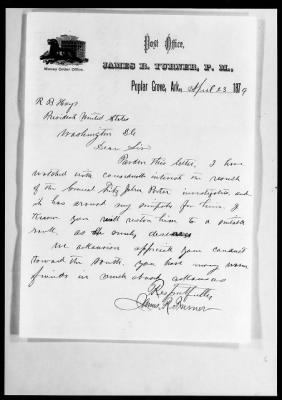 Post Office,
Money Order Office.
JAMES R. TURNER, P. M.,
Poplar Grove, Ark., April 23 1879
R B Hays
President United States
Washington
Dear Sir
Pardon this letter, I have
watched with considerable interest the result
of the General Fitz John Porter investigation, and
it has aroused my simpathy for him. I
you will restore him to a suitable
rank. as he
We appreciate your
toward the South. you have many warm
friends in
Respectfully
James R. Turner